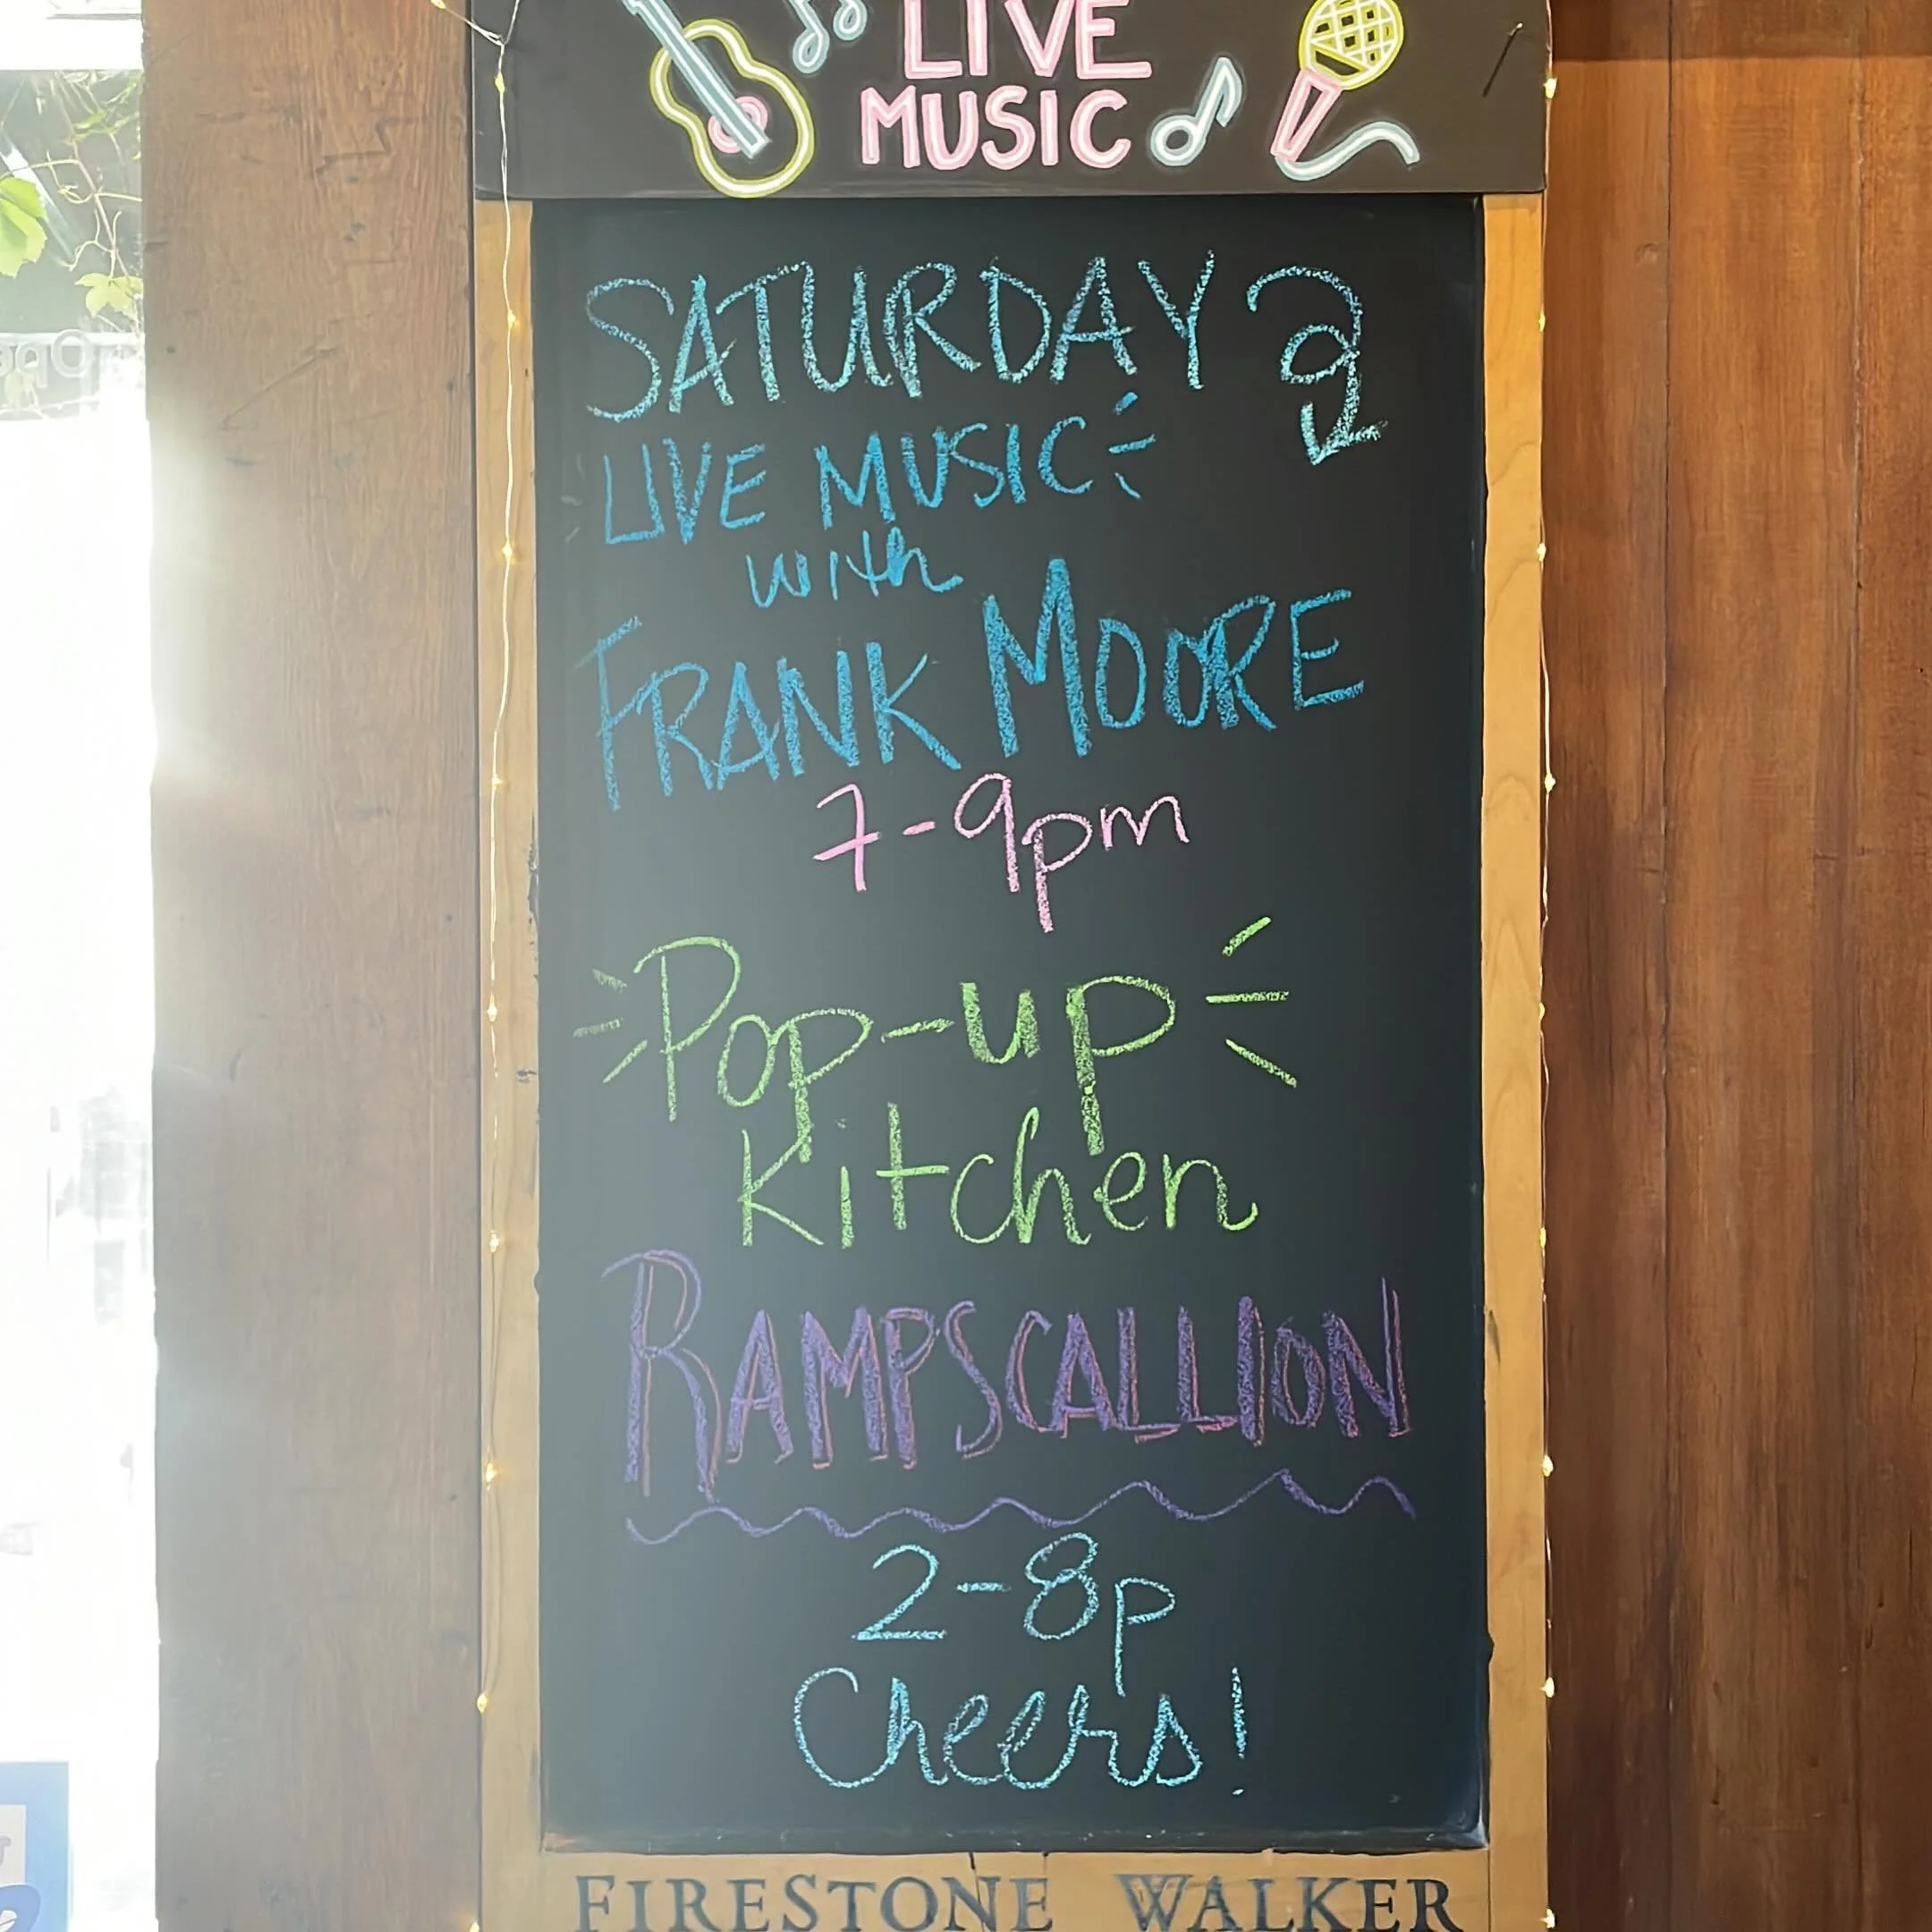 LIVE
MUSIC
SATURDAY
LIVE MUSIC
with
FRANK MOORE
7-9pm
Pop-up
Kitchen
RAMPSCALLION
2-8p
Cheers!
FIRESTONE WALKER